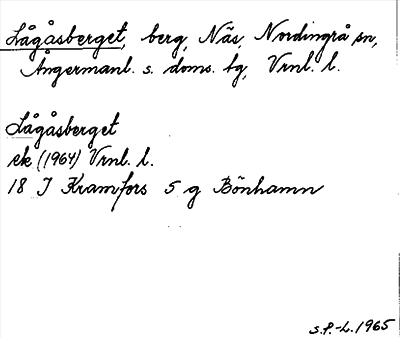 Lågåsberget, berg, Näs, Nordingrå sn,
Ångermanl. s. doms. tg, Vrnl. l.
Lågåsberget
ek (1964) Vrnl. l.
18 I Kramfors 5 g Bönhamn
S.P.-L. 1965